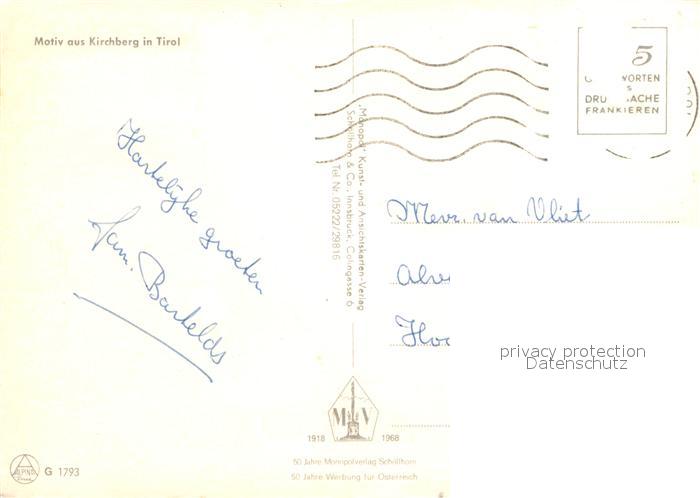 Motiv aus Kirchberg in Tirol
Hartelijke groeten
Fam. Bartelds
„Monopol" Kunst- und Ansichtskarten-Verlag
Schöllhorn & Co., Innsbruck, Colingasse 6
Tel. Nr. 05222/29816
5
WORTEN
S
DRU ACHE
FRANKIEREN
Mevr. van Vliet
privacy protection
Datenschutz
M V
1918 1968
50 Jahre Monopolverlag Schöllhorn
50 Jahre Werbung für Österreich
ALPINA
G 1793